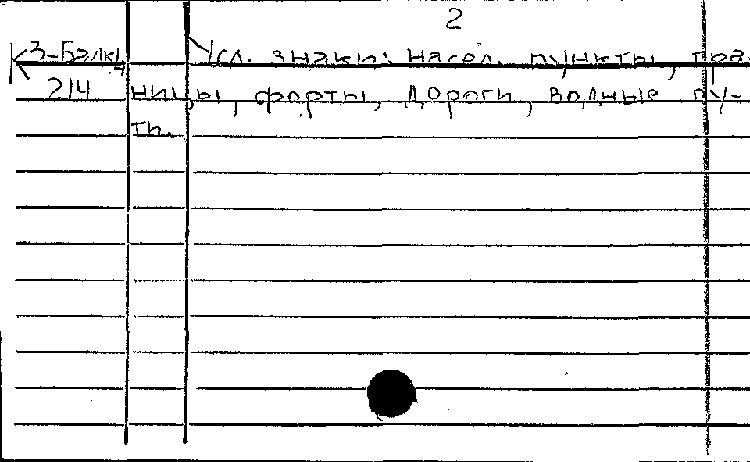 2
К З-Балк. Усл. знаки: насел. пункты, гра-
2/4 ницы, форты, дороги, водные пу-
ти.